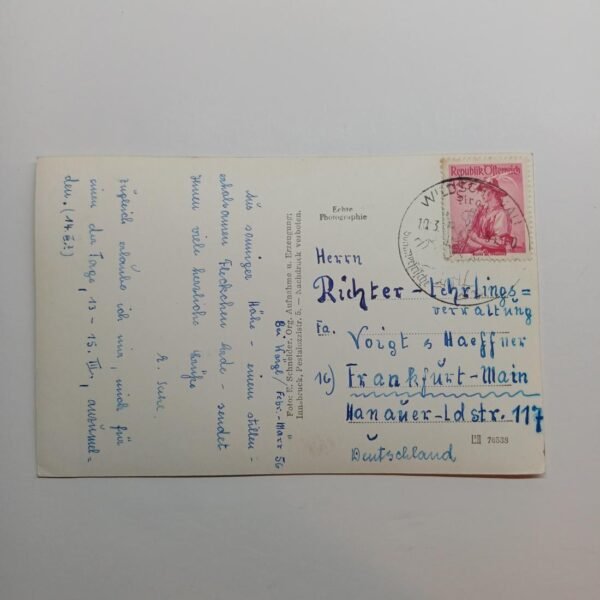 Aus sonniger Höhe - einem stillen -
erholsamen Fleckchen Erde - sendet
Ihnen viele herzliche Grüße
zugleich erlaube ich mir, mich für
einen der Tage, 13 - 15. III., anzumel=
den. (14. III.?)
Bei Wörgl / Febr.-März 56
Foto: E. Schneider, Org. Aufnahme u. Erzeugung:
Innsbruck, Pestalozzistr. 5. — Nachdruck verboten.
Echte
Photographie
Republik Österreich
Tirol
WILDSCHÖNAU
Herrn
Richter - Lehrlings=
verwaltung
Fa. Voigt & Haeffner
16) Frankfurt-Main
Hanauer-Ldstr. 117
Deutschland
76538